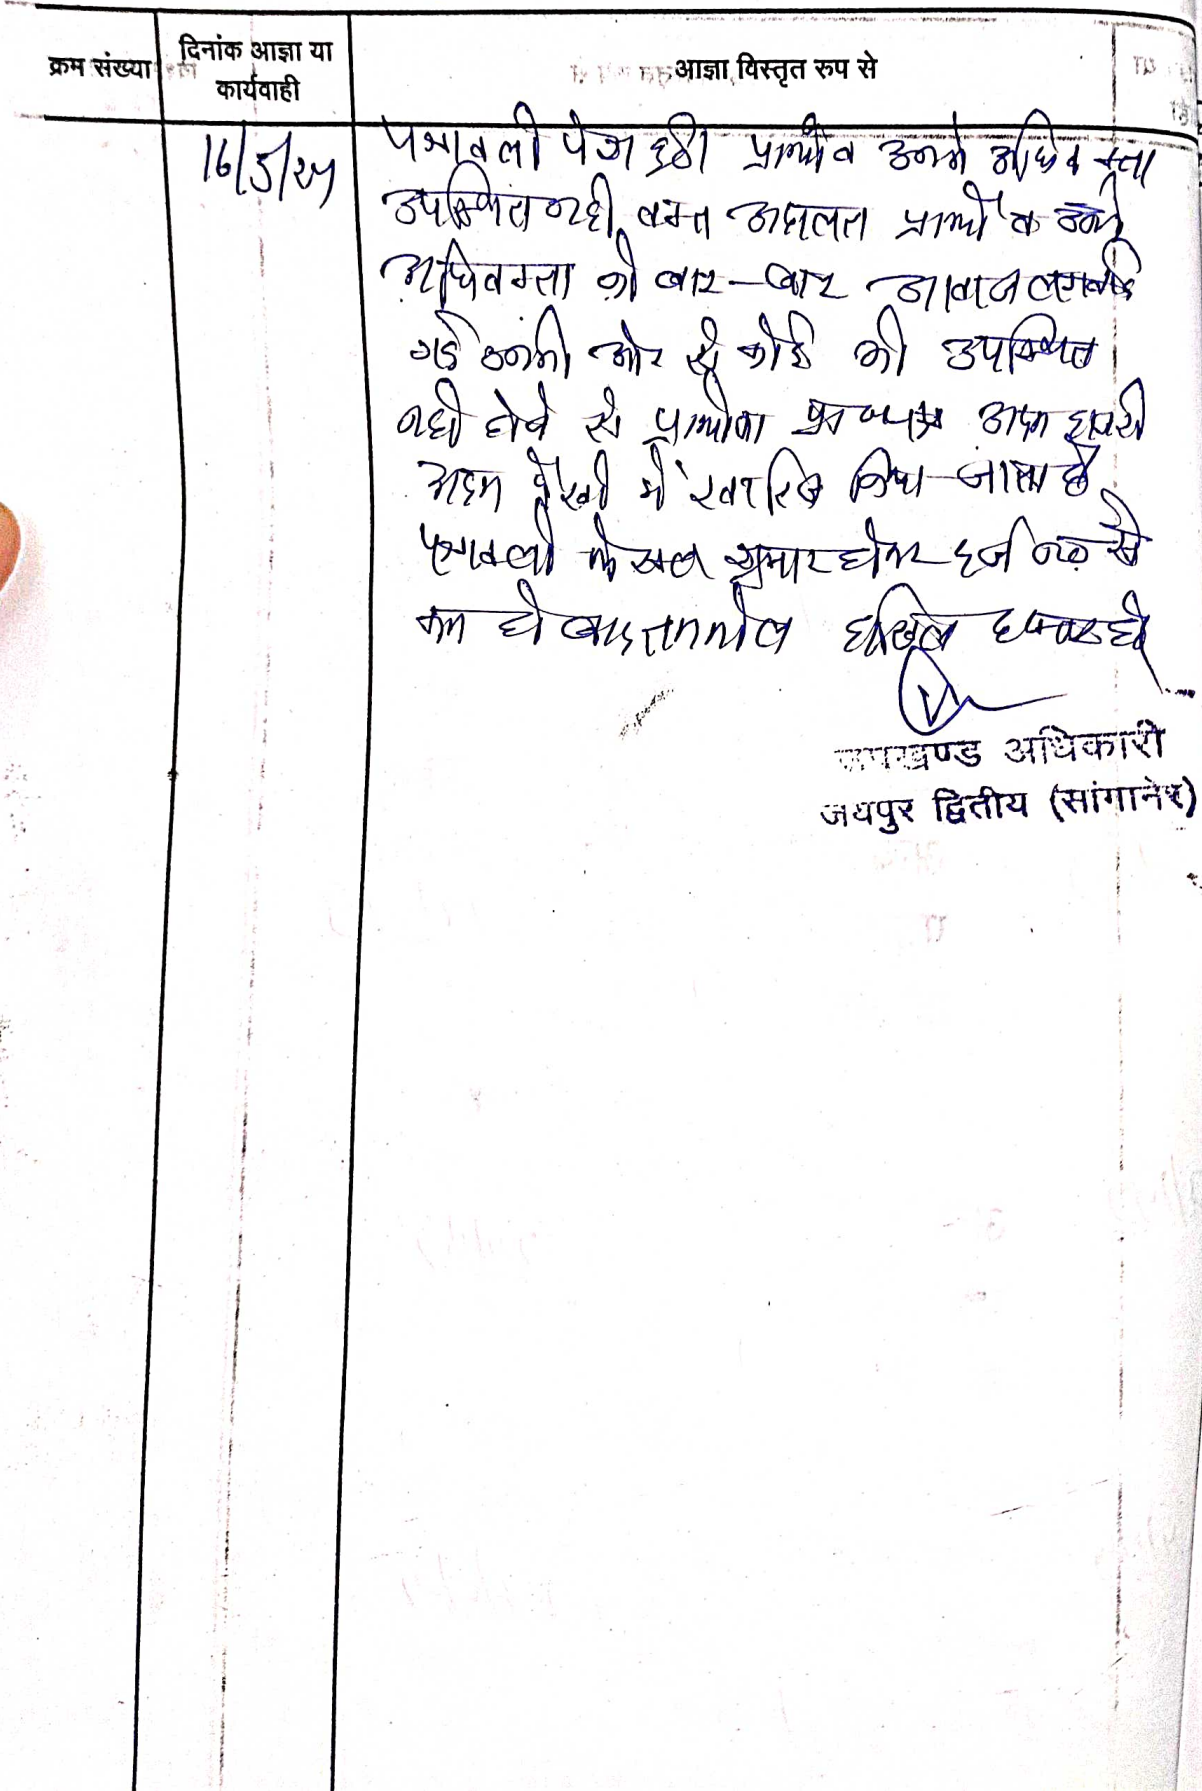 क्रम संख्या
दिनांक आज्ञा या
कार्यवाही
आज्ञा विस्तृत रुप से
16/5/24
पत्रावली पेश हुई। प्रार्थी व उनके अधिवक्ता
उपस्थित नहीं वक्त अदालत प्रार्थी व उनके
अधिवक्ता को बार-बार आवाज लगवाई
गई उनकी ओर से कोई भी उपस्थित
नहीं होने से प्रार्थी का प्रा० पत्र अदम हाजरी
अदम पैरवी में खारिज किया जाता है
पत्रावली फैसल शुमार होकर दर्ज न० से
कम हो बाद तकमील दाखिल दफ्तर हो
उपखण्ड अधिकारी
जयपुर द्वितीय (सांगानेर)